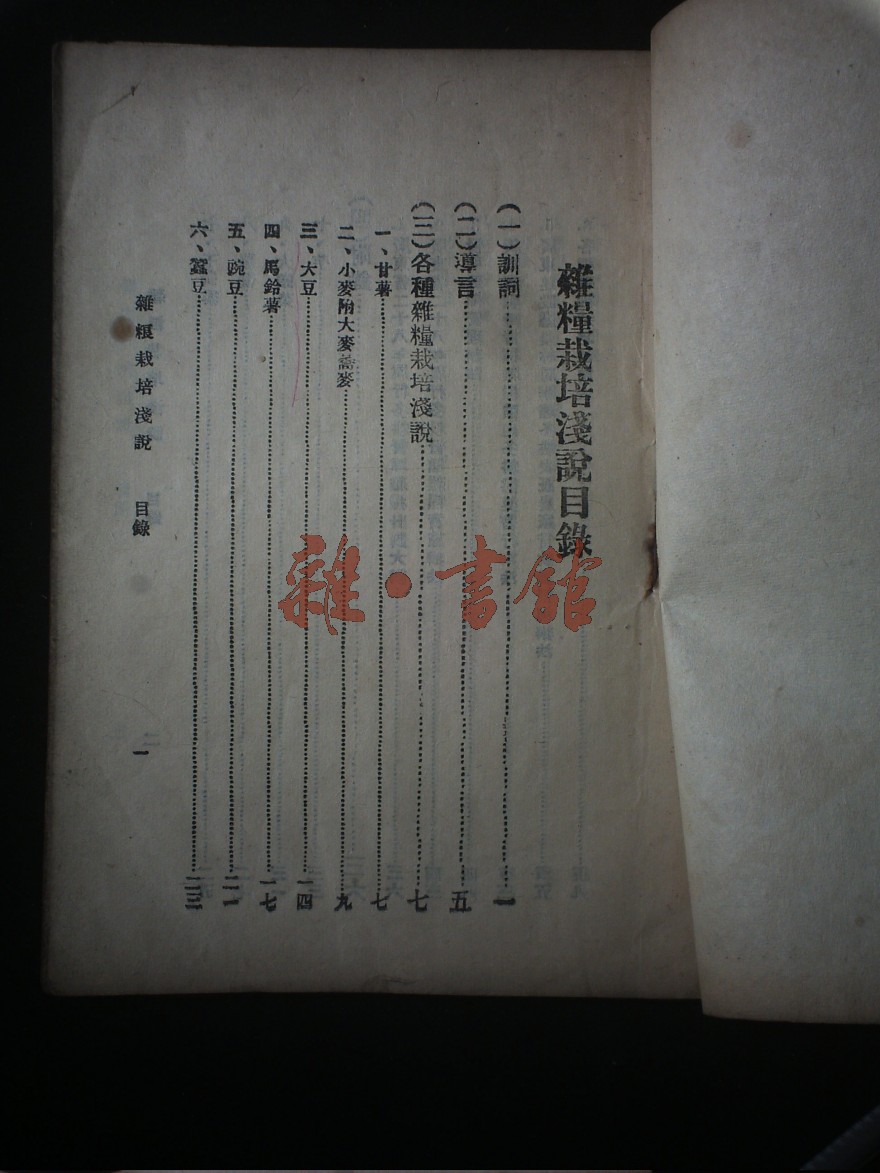 雜糧栽培淺說目錄
(一)訓詞……一
(二)導言……五
(三)各種雜糧栽培淺說……七
一、甘薯……七
二、小麥附大麥蕎麥……九
三、大豆……一四
四、馬鈴薯……一七
五、豌豆……二一
六、蠶豆……二三
雜糧栽培淺說 目錄 一
雜·書館